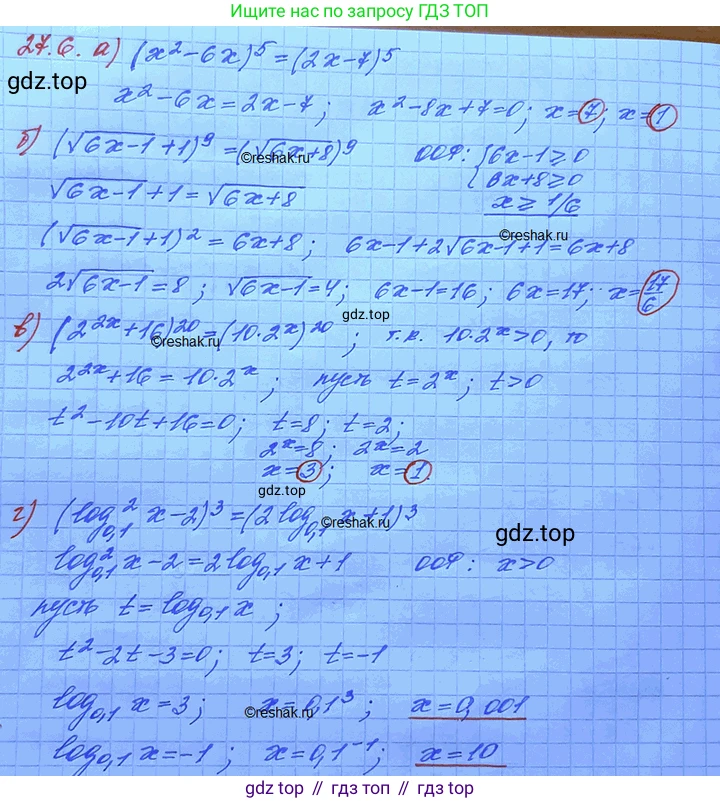 Ищите нас по запросу ГДЗ ТОП
27.6. а) (x²-6x)⁵=(2x-7)⁵
gdz.top
x²-6x=2x-7; x²-8x+7=0; x=7; x=1
б) (√6x-1+1)⁹=(√6x+8)⁹ ООФ: {6x-1≥0
©reshak.ru
{8x+8≥0
√6x-1+1=√6x+8 x≥1/6
(√6x-1+1)²=6x+8; 6x-1+2√6x-1+1=6x+8
2√6x-1=8; √6x-1=4; 6x-1=16; 6x=17; x=17/6
в) (2²ˣ+16)²⁰=(10·2ˣ)²⁰; т.к. 10·2ˣ>0, то
©reshak.ru
gdz.top
2²ˣ+16=10·2ˣ; пусть t=2ˣ; t>0
t²-10t+16=0; t=8; t=2;
2ˣ=8; 2ˣ=2
x=3; x=1.
gdz.top
г) (log²₀,₁ x-2)³=(2log₀,₁ x+1)³
©reshak.ru
gdz.top
log²₀,₁ x-2=2log₀,₁ x+1 ООФ: x>0
пусть t=log₀,₁ x;
t²-2t-3=0; t=3; t=-1
log₀,₁ x=3; x=0,1³; x=0,001
©reshak.ru
log₀,₁ x=-1; x=0,1⁻¹; x=10
gdz.top // гдз топ // gdz.top